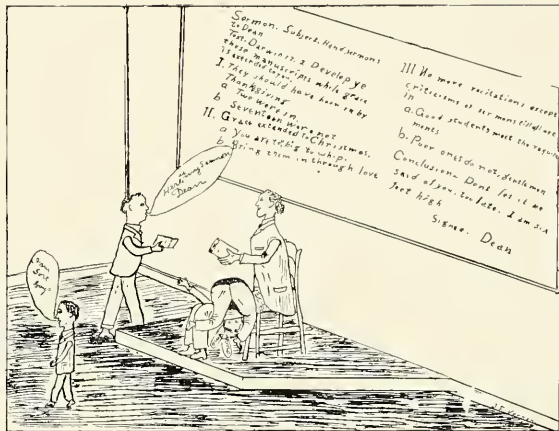 Sermon. Subject. Hand sermons
to Dean
Text. Darwin 17. 2 Develop ye
these manuscripts while grace
is extended to you.
I. They should have been in by
Thanksgiving
a Two were in.
b Seventeen were not
II. Grace extended to Christmas.
a You are to big to whip.
b Bring them in through love
III No more recitations except
criticisms of sermons till all are
in
a. Good students meet the require
ments
b. Poor ones do not, gentlemen
Conclusion- Dont let it be
said of you, too late. I am six
feet high
Signed. Dean
Here is my Sermon
Dean